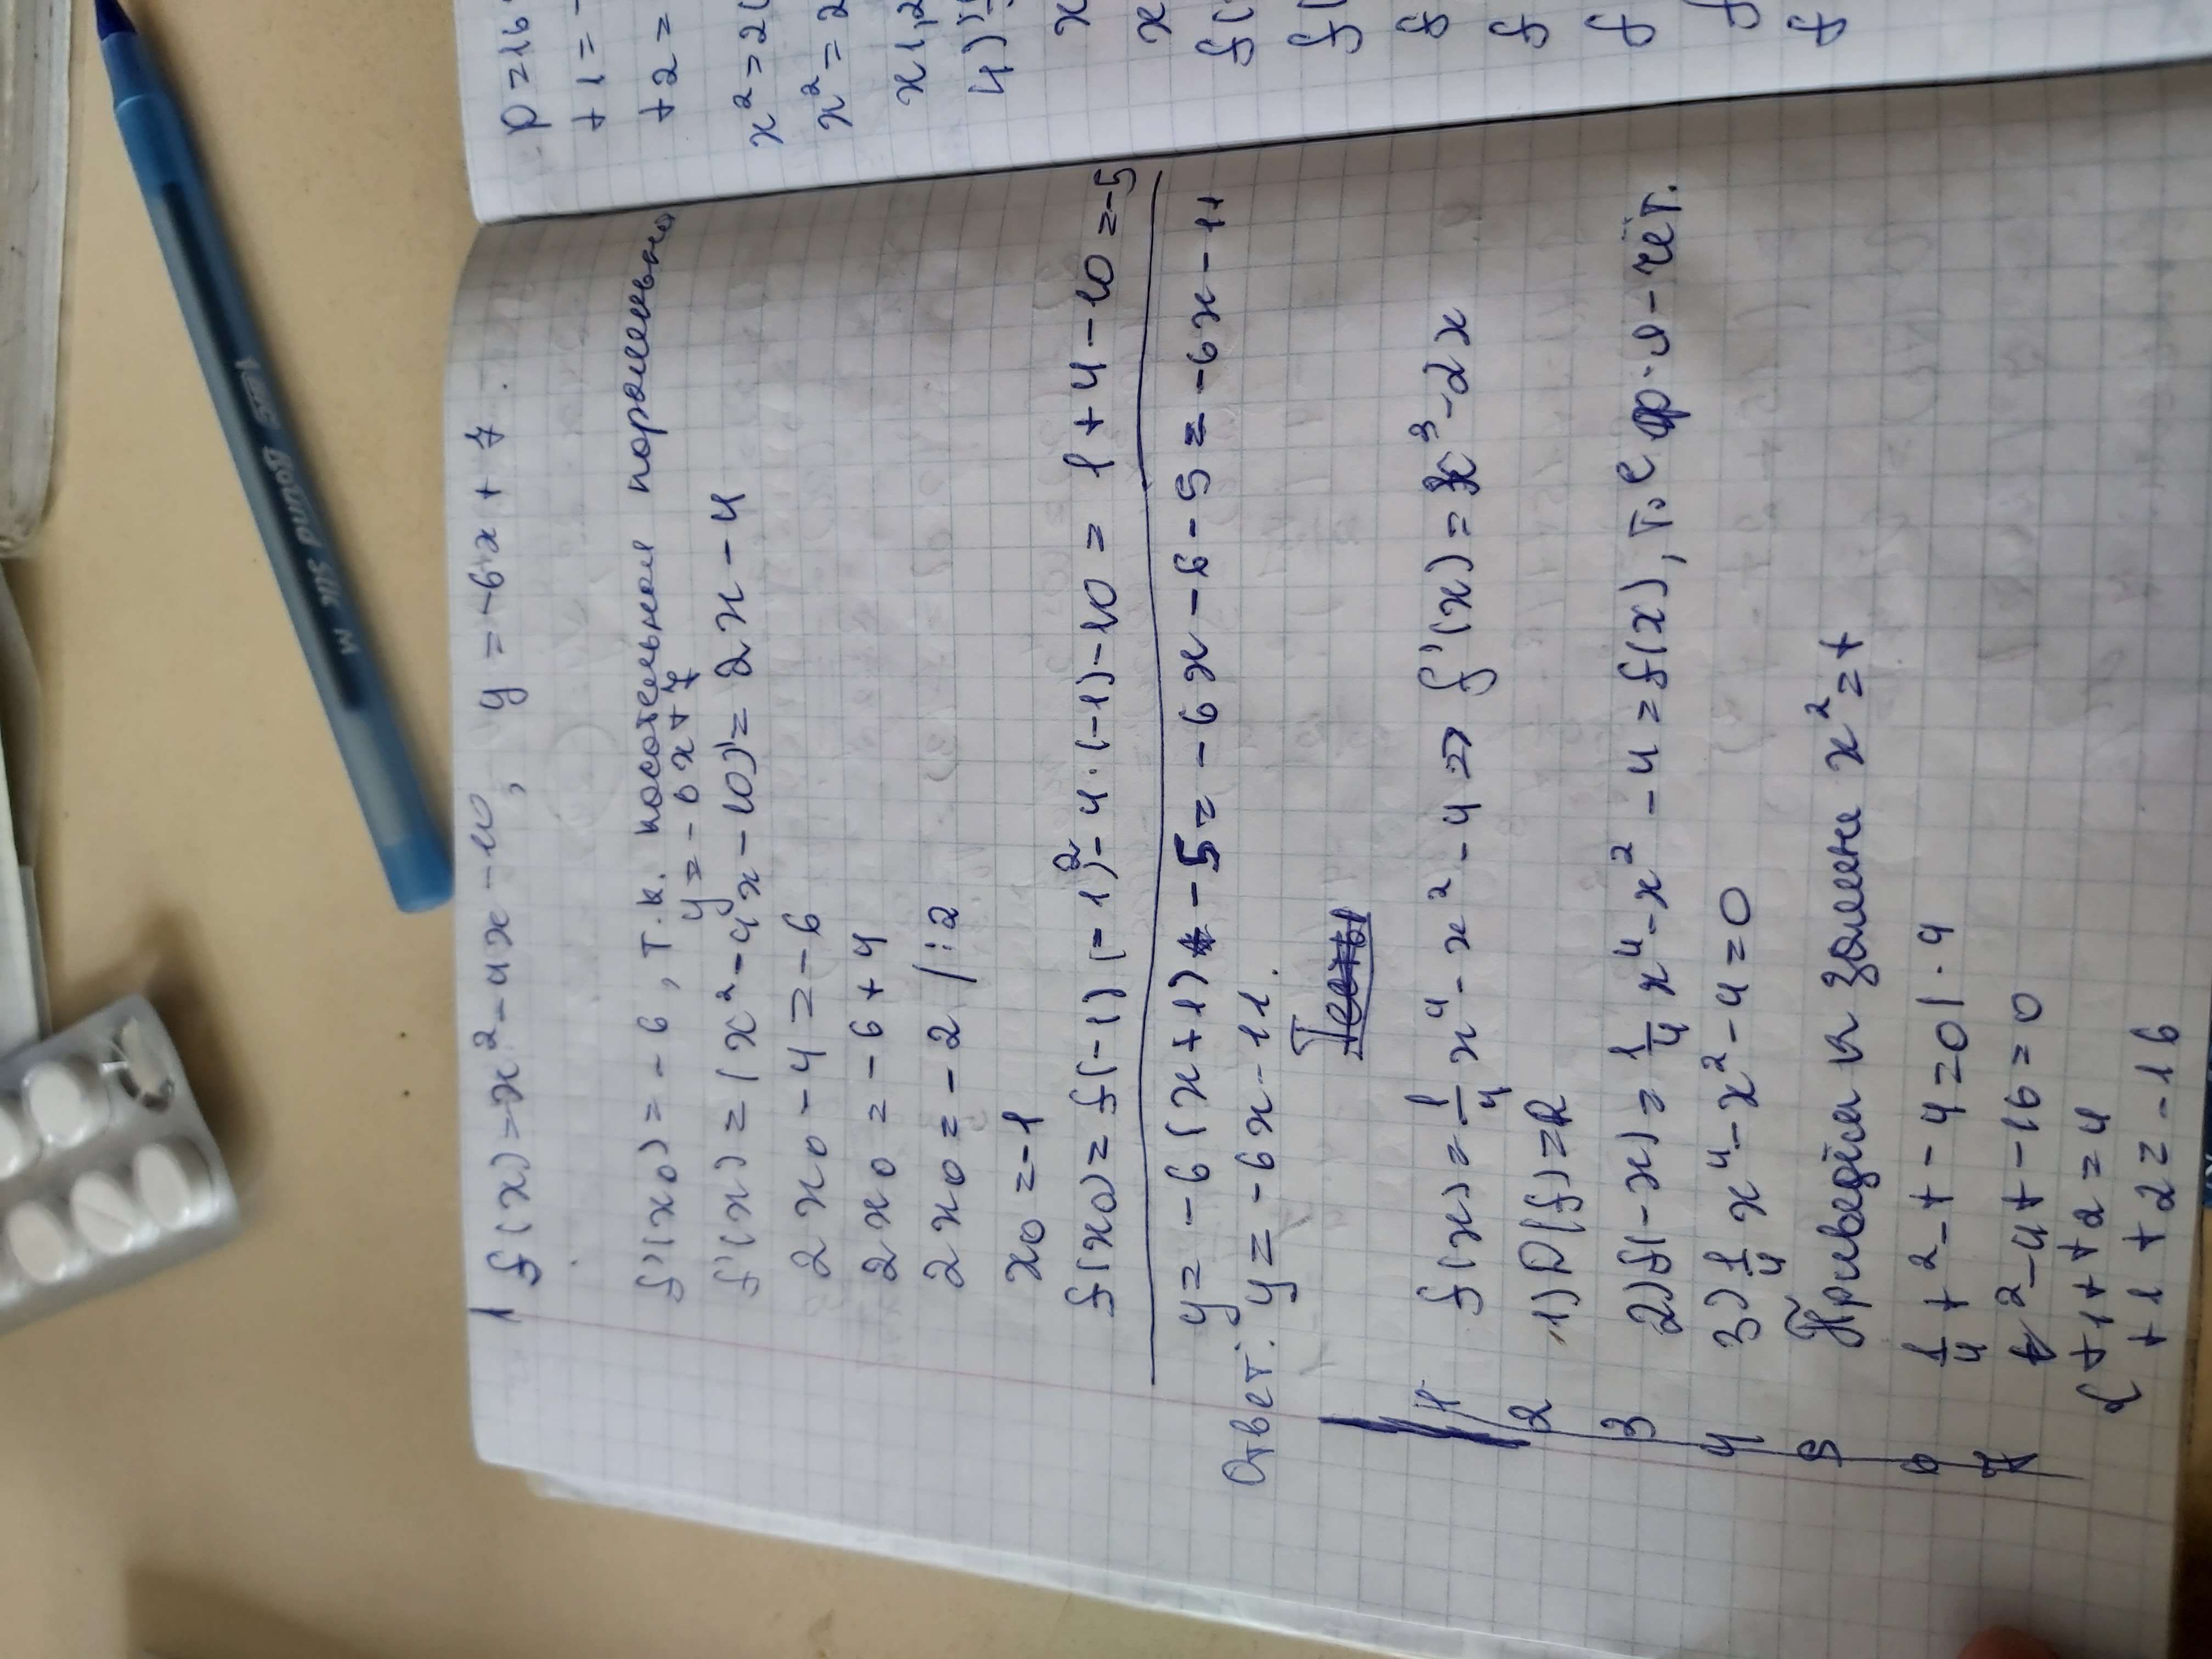 1 f(x)=x²-4x-10, y=-6x+7.
f'(x₀)=-6, т.к. косательная паралельна
y=-6x+7
f'(x)=(x²-4x-10)'=2x-4
2x₀-4=-6
2x₀=-6+4
2x₀=-2 /:2
x₀=-1
f(x₀)=f(-1)(-1)²-4·(-1)-10=1+4-10=-5
y=-6(x+1)-5=-6x-6-5=-6x-11
Ответ: y=-6x-11.
1 f(x)=1/4x⁴-x²-4 => f'(x)=x³-2x
2 1) D(f)=R
3 2) f(-x)=1/4x⁴-x²-4=f(x), т.е ф-я-чёт.
4 3) 1/4x⁴-x²-4=0
5 Приведём к замене x²=t
6 1/4t²-t-4=0|·4
7 t²-4t-16=0
{t1+t2=4
t1t2=-16
p=16
t1=
t2=
x²=2(
x²=2
x1,2
4)
x
x
f(
f(
f
f
f
f
f
Round Stic M